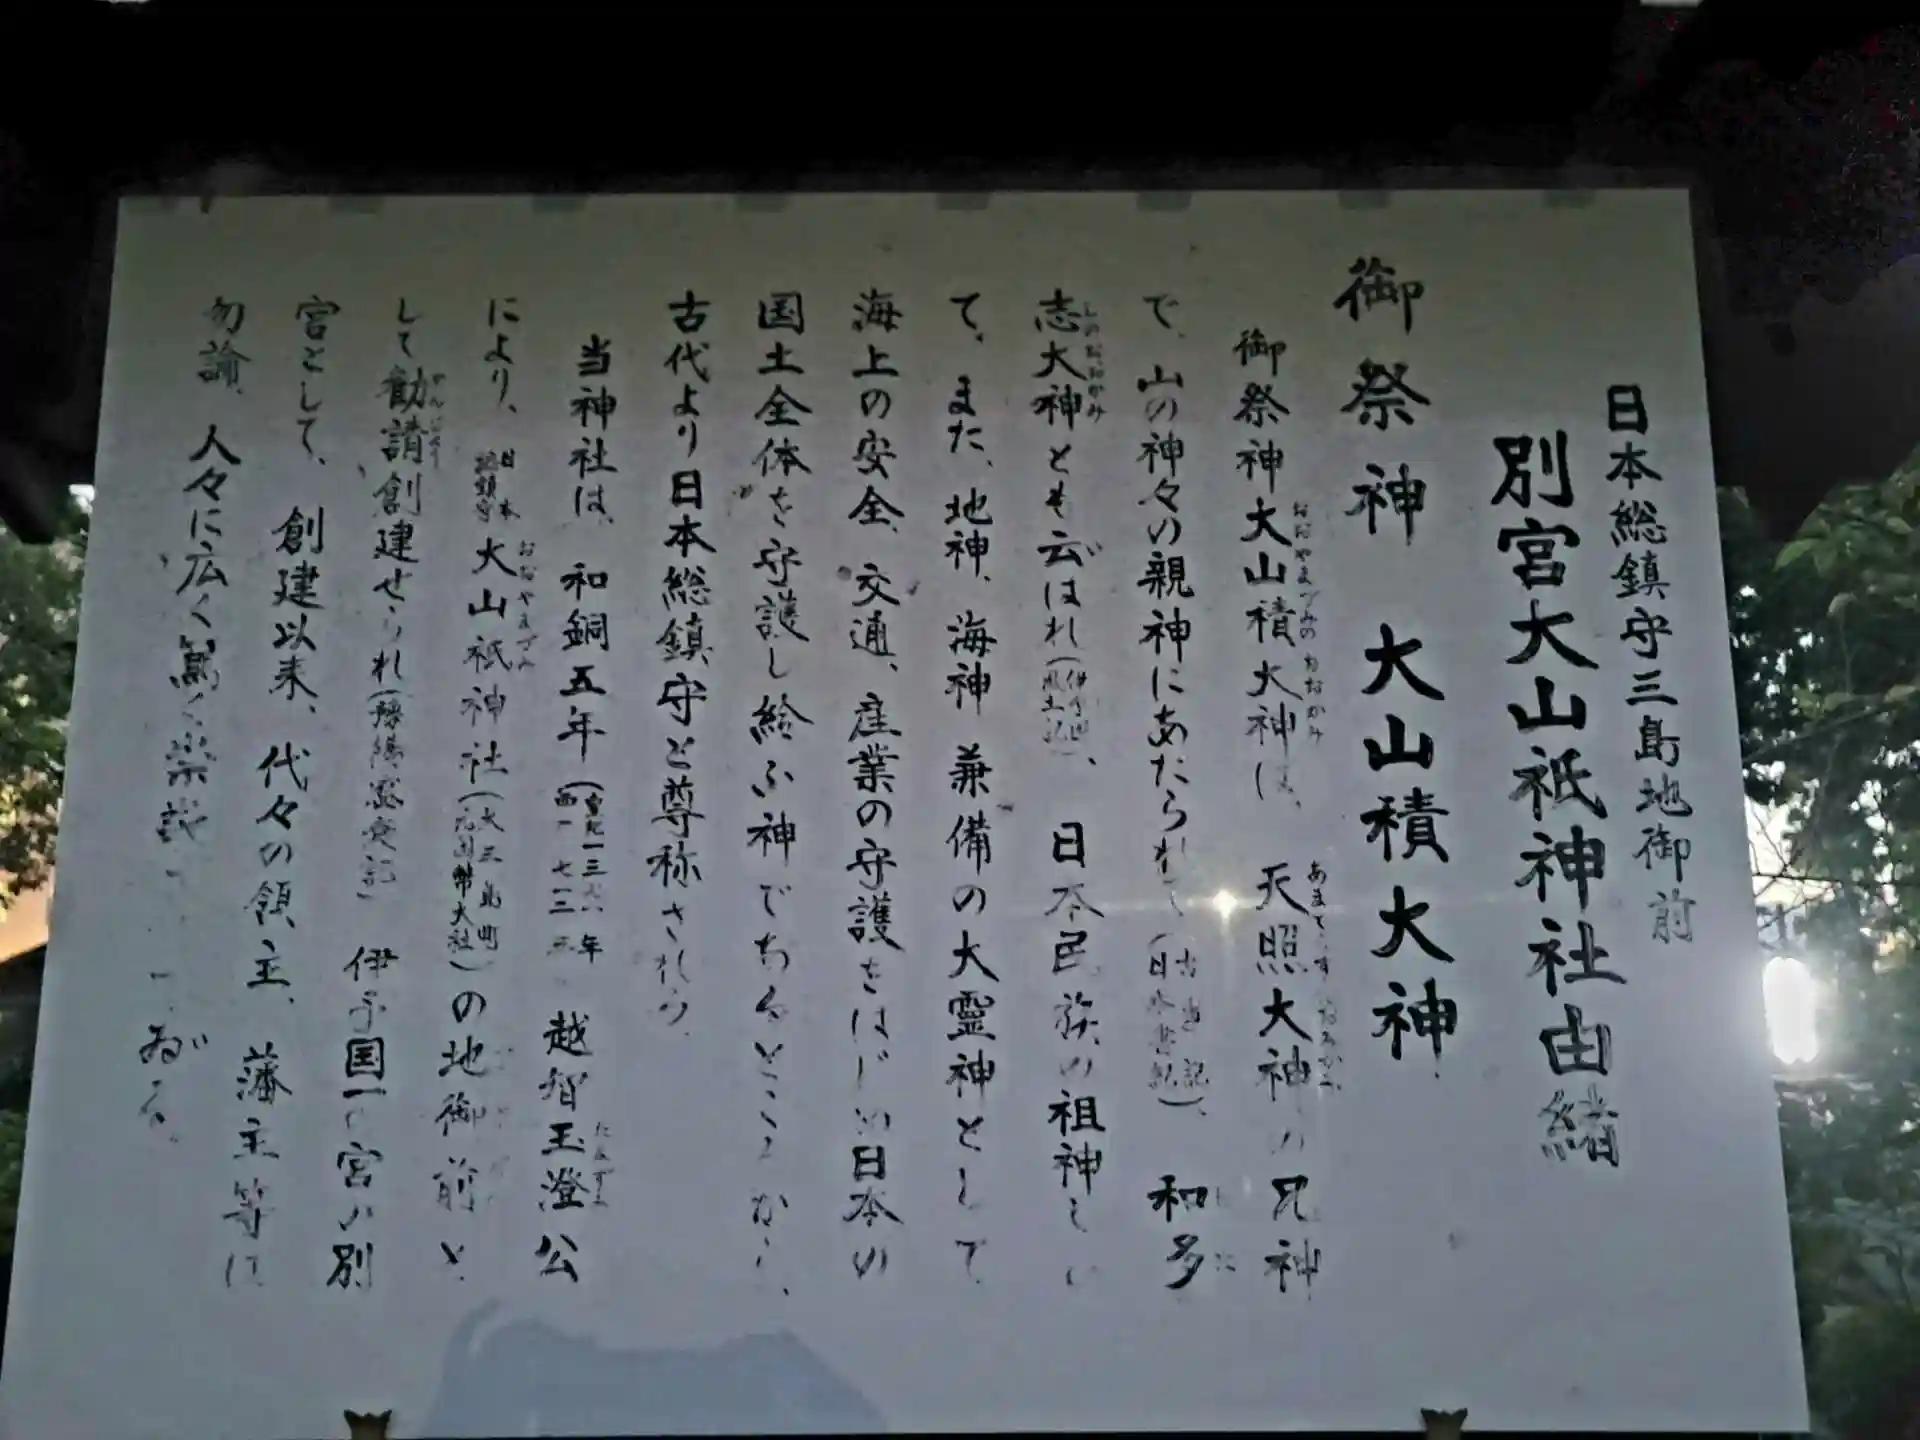 日本総鎮守三島地御前
別宮大山祇神社由緒
御祭神 大山積大神
御祭神大山積大神は、天照大神の兄神
で、山の神々の親神にあたられて(古事記 日本書紀)、和多
志大神とも云はれ(伊予国 風土記)、日本民族の祖神とし
て、また、地神、海神兼備の大霊神として
海上の安全、交通、産業の守護をはじめ日本の
国土全体を守護し給ふ神であるところから、
古代より日本総鎮守と尊称される。
当神社は、和銅五年(西 七一二)越智玉澄公
により、日本総鎮守大山祇神社(大三島町 元国幣大社)の地御前と
して勧請創建せられ 伊予国一の宮の別
宮として、創建以来、代々の領主、藩主等は
勿論、人々に広く篤く崇 ゐる。